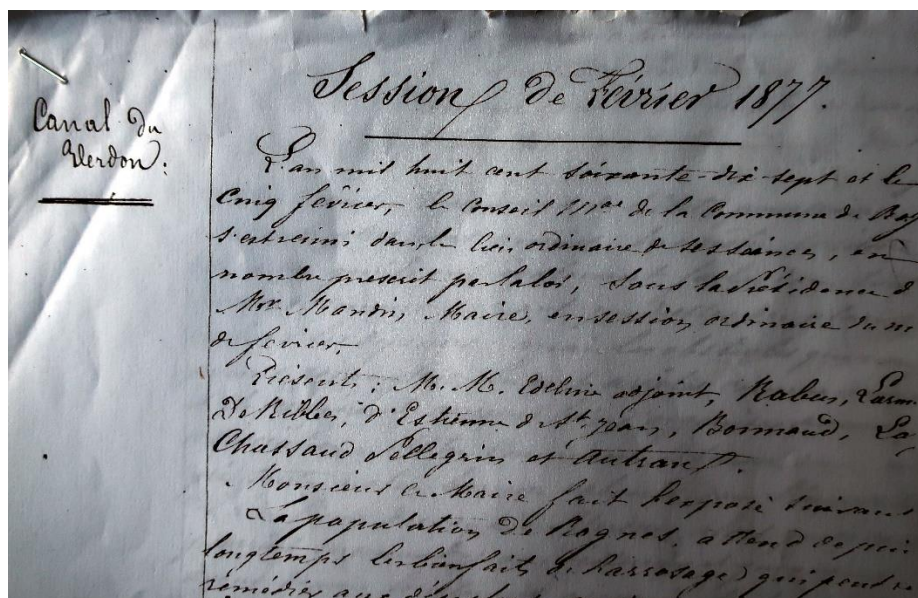 Session de Février 1877.
Canal du
Verdon.
L'an mil huit cent soixante-dix-sept et le
cinq février, le Conseil Mal de la Commune de Rog
s'est réuni dans le lieu ordinaire de ses séances, en
nombre prescrit par la loi, sous la Présidence d
Mr Mandin, Maire, en session ordinaire du m
de février.
Présents : M. M. adjoint, Rabus,
De Ribbes, d'Estienne de St Jean, Bonnaud, La
Chassaud Pellegrin et Autran.
Monsieur le Maire fait l'exposé suivant
La population de Rognes attend depuis
longtemps les bienfaits de l'arrosage qui peut
remédier aux